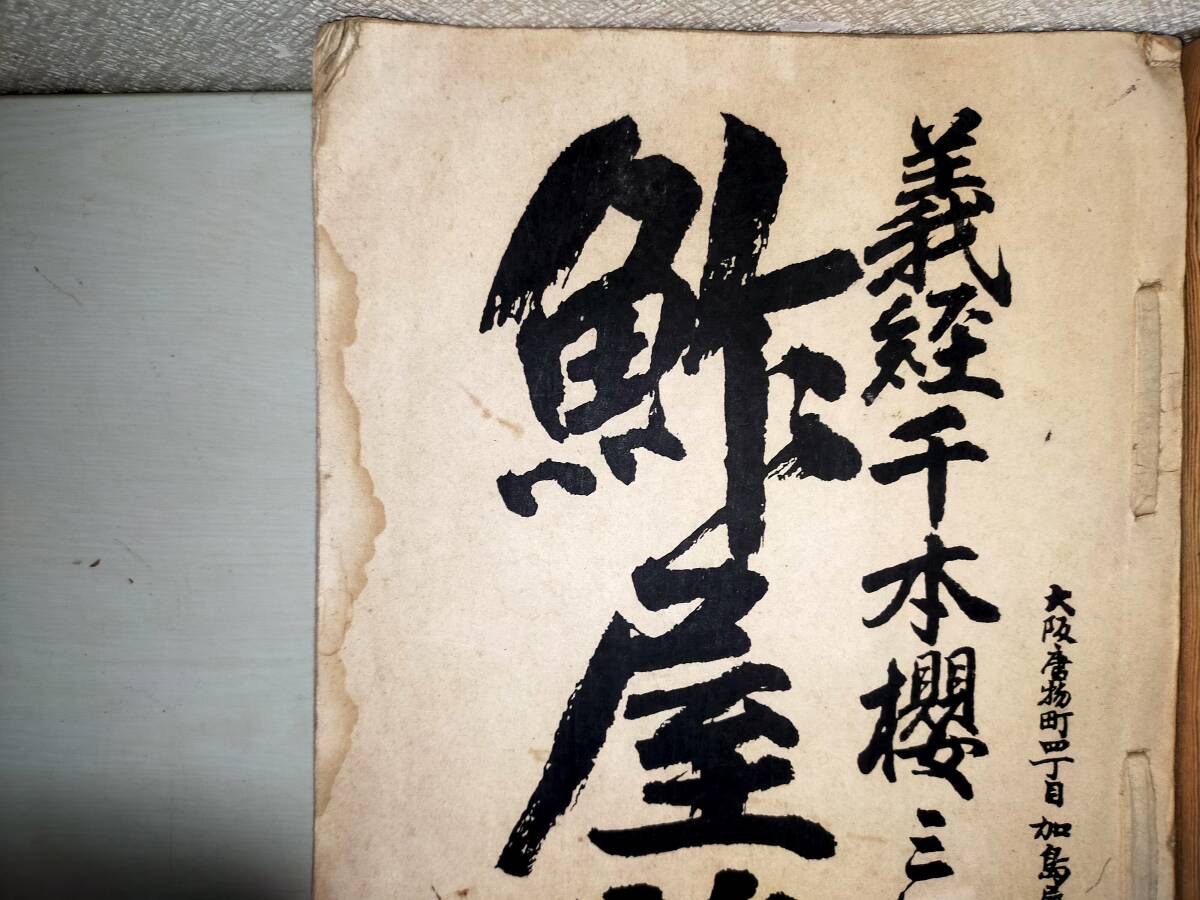 大阪唐物町四丁目加島屋
義経千本櫻三
鮓屋